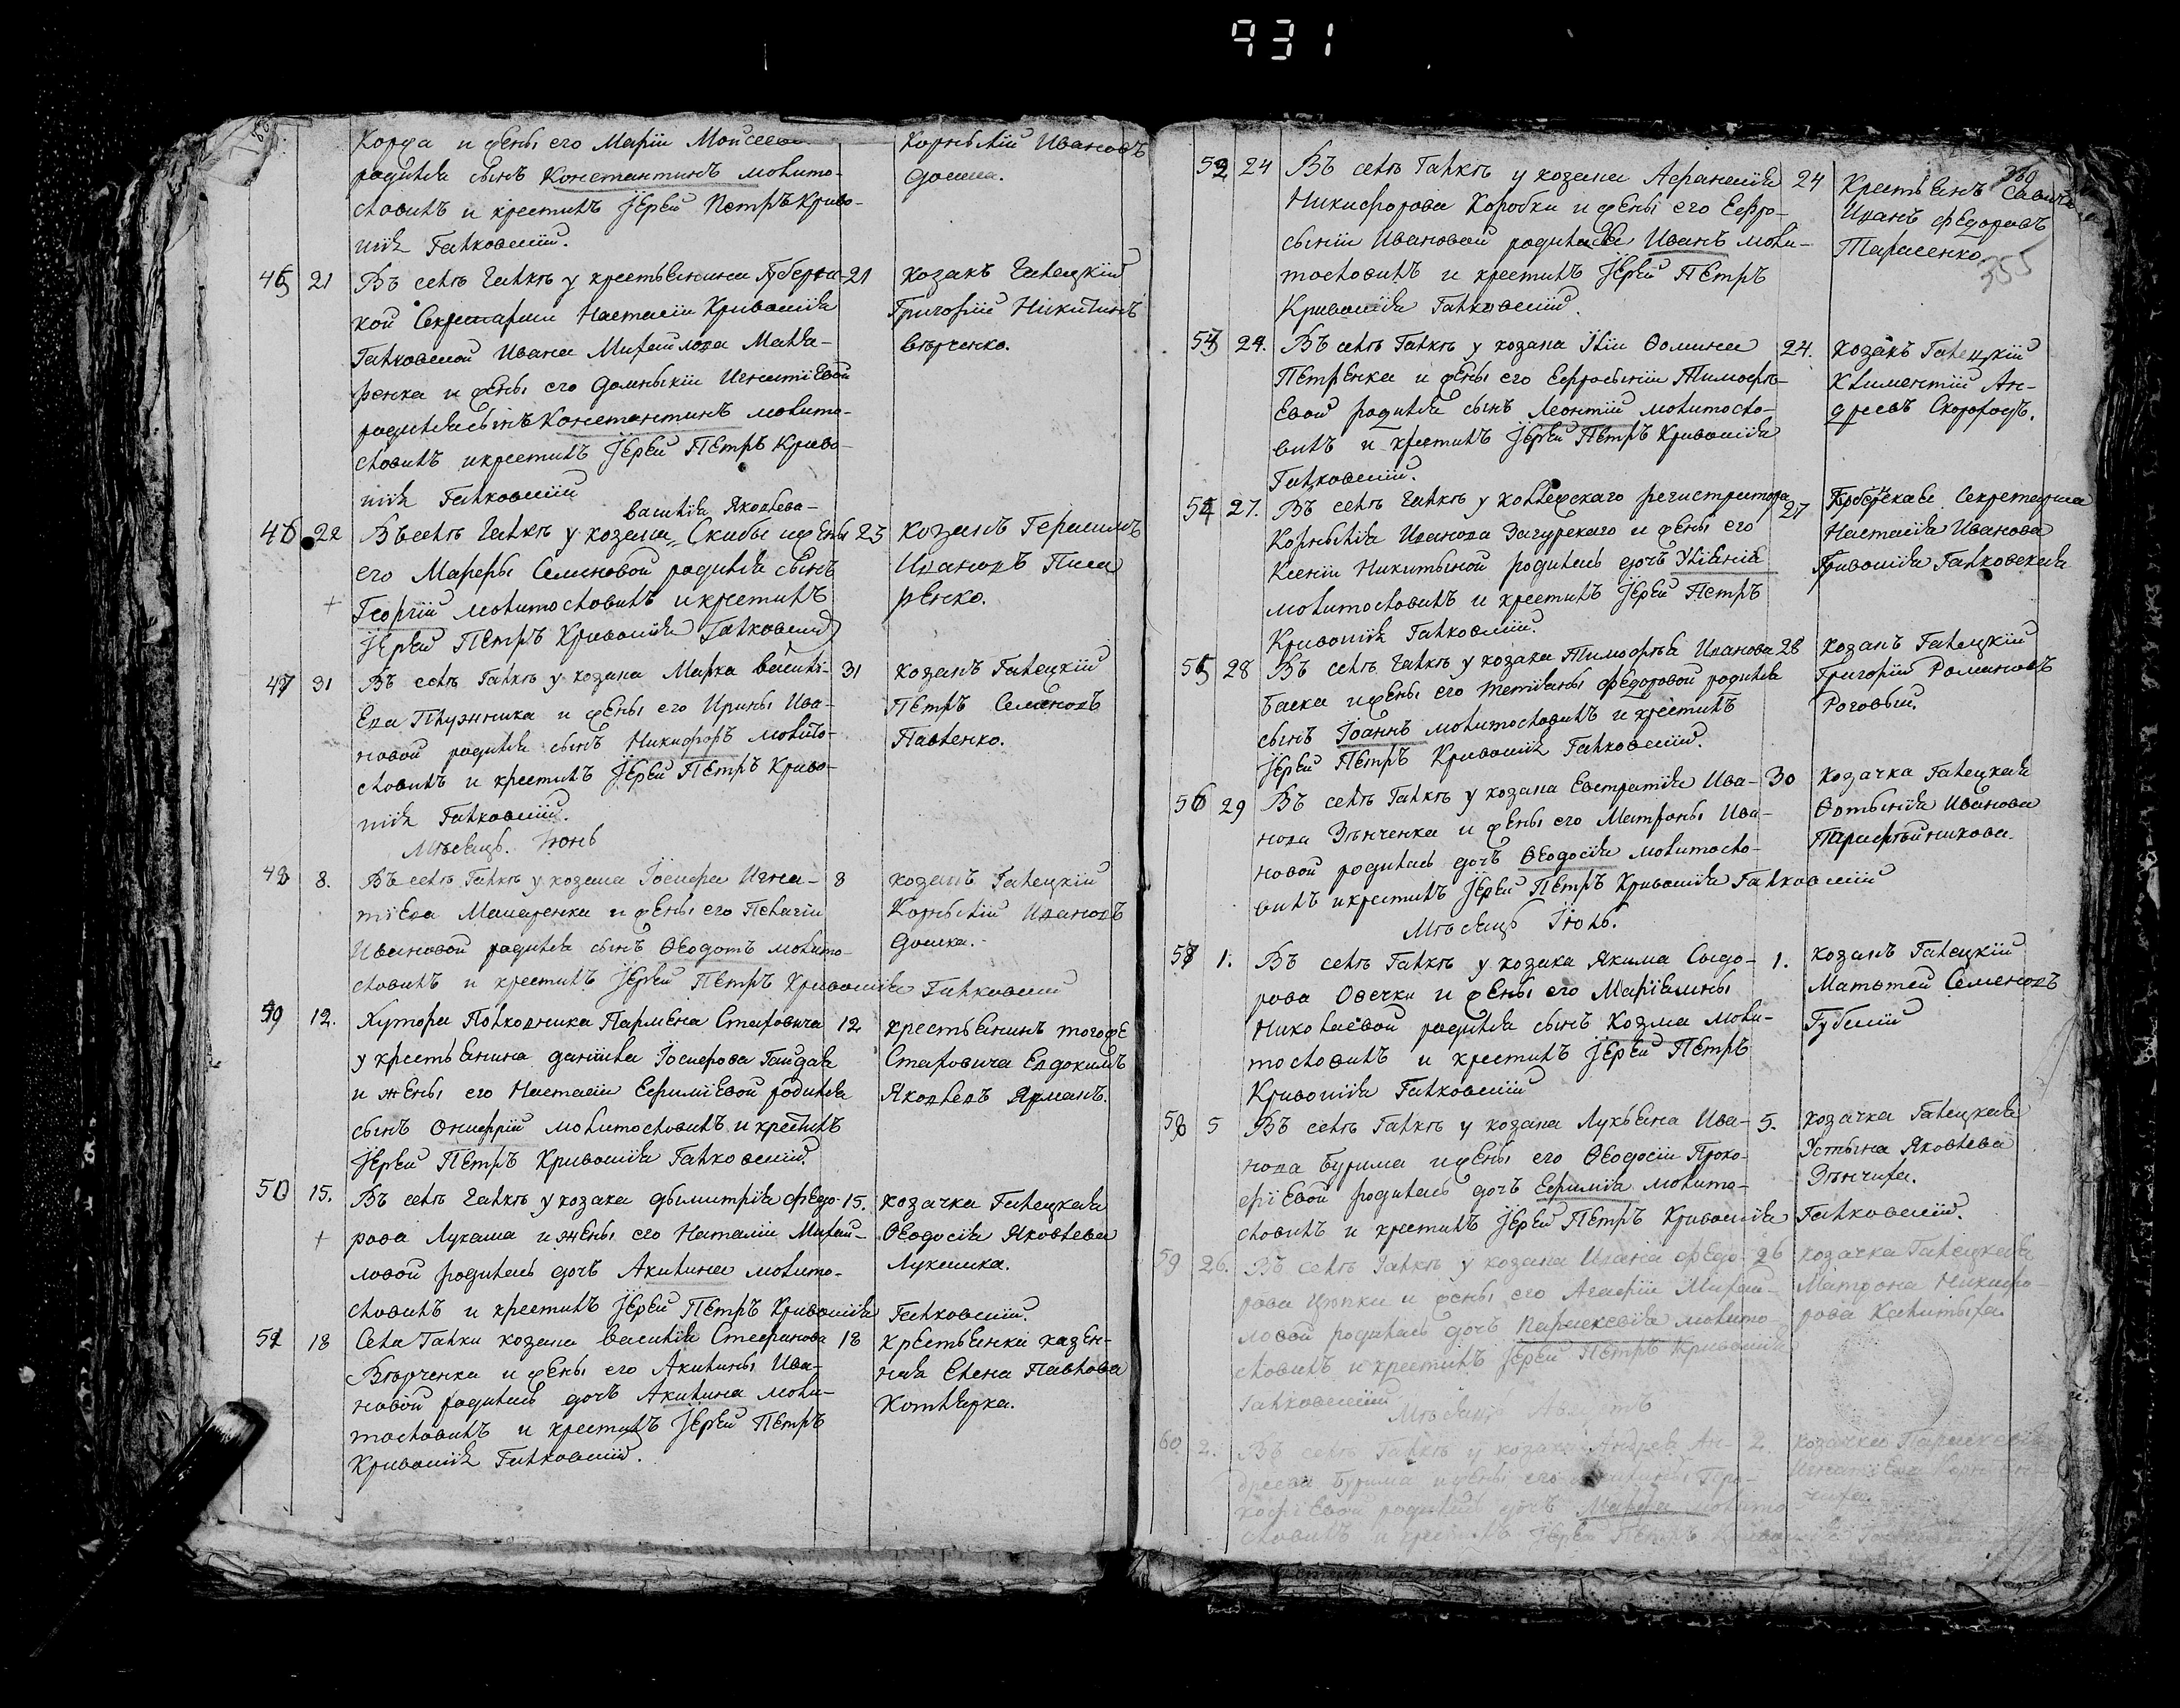 931
Корда и жены его Маріи Моисеевой
родился сынъ Константинъ молито-
словилъ и крестилъ Іерей Петръ Криво-
шія Галковскій.
Корнилій Ивановъ
Дошка.
45 21 Въ селѣ Галкѣ у крестьянина Губернс-
кой Секретарши Настасіи Кривошія
Галковской Ивана Михайлова Мака-
ренка и жены его Домникіи Игнатіевой
родился сынъ Константинъ молито-
словилъ и крестилъ Іерей Петръ Криво-
шія Галковскій
21 козакъ Галецкій
Григорій Никитинъ
Вѣрченко.
Василія Яковлева
46 22 Въ селѣ Галкѣ у козака Скибы и жены
его Марфы Семеновой родился сынъ
Георгій молитословилъ и крестилъ
Іерей Петръ Кривошія Галковскій
23 козакъ Герасимъ
Ивановъ Писа
ренко.
47 31 Въ селѣ Галкѣ у козака Марка Василь-
ева Плужника и жены его Ирины Ива-
новой родился сынъ Никифоръ молито-
словилъ и крестилъ Іерей Петръ Криво-
шія Галковскій.
31 козакъ Галецкій
Петръ Семеновъ
Павленко.
Мѣсяцъ. Іюнь
48 8. Въ селѣ Галкѣ у козака Іосифа Игна-
тіева Макаренка и жены его Пелагіи
Ивановой родился сынъ Ѳеодотъ молито-
словилъ и крестилъ Іерей Петръ Кривошія Галковскій
8 козакъ Галецкій
Корнилій Ивановъ
Дошка.
49 12. Хутора Полковника Пармена Старовича
у крестьянина Даніила Іосифова Гайдая
и жены его Настасіи Ефиміевой родился
сынъ Онифрій молитословилъ и крестилъ
Іерей Петръ Кривошія Галковскій.
12 крестьянинъ того же
Старовича Евдокимъ
Яковлевъ Ярмакъ.
50 15. Въ селѣ Галкѣ у козака Дымитрія Федо-
рова Лукаша и жены его Наталіи Михай-
ловой родилась дочь Акилина молито-
словилъ и крестилъ Іерей Петръ Кривошія Галковскій.
15. козачка Галецкая
Ѳеодосія Яковлева
Лукашка.
51 18 Села Галки козака Василія Стефанова
Вѣрченка и жены его Акилины Ива-
новой родилась дочь Акилина моли-
тословилъ и крестилъ Іерей Петръ
Кривошія Галковскій.
18 крестьянка казен-
ная Елена Павлова
Котлярка.
360
355
52 24 Въ селѣ Галкѣ у козака Афанасія
Никифорова Коробки и жены его Ефро-
сыніи Ивановой родился Иванъ моли-
тословилъ и крестилъ Іерей Петръ
Кривошія Галковскій.
24 Крестьянъ Савича
Иванъ Федоровъ
Тарасенко
53 24. Въ селѣ Галкѣ у козака Иліи Ѳомина
Петренка и жены его Ефросыніи Тимофѣ-
евой родился сынъ Леонтій молитосло-
вилъ и крестилъ Іерей Петръ Кривошія
Галковскій.
24. козакъ Галецкій
Климентій Ан-
дреевъ Скороходъ.
54 27. Въ селѣ Галкѣ у коллежскаго регистратора
Корнилія Иванова Загурскаго и жены его
Ксеніи Никитиной родилась дочь Уліанія
молитословилъ и крестилъ Іерей Петръ
Кривошія Галковскій.
27 Губернская Секретарша
Настасія Иванова
Кривошія Галковская
55 28 Въ селѣ Галкѣ у козака Тимофѣя Иванова
Баска и жены его Татіаны Федоровой родился
сынъ Іоаннъ молитословилъ и крестилъ
Іерей Петръ Кривошія Галковскій.
28 козакъ Галецкій
Григорій Романовъ
Роговый.
56 29 Въ селѣ Галкѣ у козака Евстратія Ива-
нова Зѣнченка и жены его Матроны Ива-
новой родилась дочь Ѳеодосія молитосло-
вилъ и крестилъ Іерей Петръ Кривошія Галковскій
30 козачка Галецкая
Фотынія Иванова
Парафѣйникова
Мѣсяцъ Іюль.
57 1. Въ селѣ Галкѣ у козака Якима Сидо-
рова Овечки и жены его Маріамны
Николаевой родился сынъ Козма моли-
тословилъ и крестилъ Іерей Петръ
Кривошія Галковскій
1. козакъ Галецкій
Матвей Семеновъ
Губскій
58 5 Въ селѣ Галкѣ у козака Лукьяна Ива-
нова Бурима и жены его Ѳеодосіи Проко-
фіевой родилась дочь Ефимія молито-
словилъ и крестилъ Іерей Петръ Кривошія Галковскій.
5. козачка Галецкая
Устына Яковлева
Зѣнчиха.
59 26. Въ селѣ Галкѣ у козака Ивана Федо-
рова Цюпки и жены его Агафіи Михай-
ловой родилась дочь Параскевія молито
словилъ и крестилъ Іерей Петръ Кривошія
Галковскій
26 козачка Галецкая
Матрона Никифо-
рова Калитыха.
Мѣсяцъ Августъ
60 2. Въ селѣ Галкѣ у козака Андрея Ан-
дреева Бурима и жены его Про-
кофіевой родилась дочь Марфа молито
словилъ и крестилъ Іерей Петръ
2 козачка Параскевія
Игнатіева